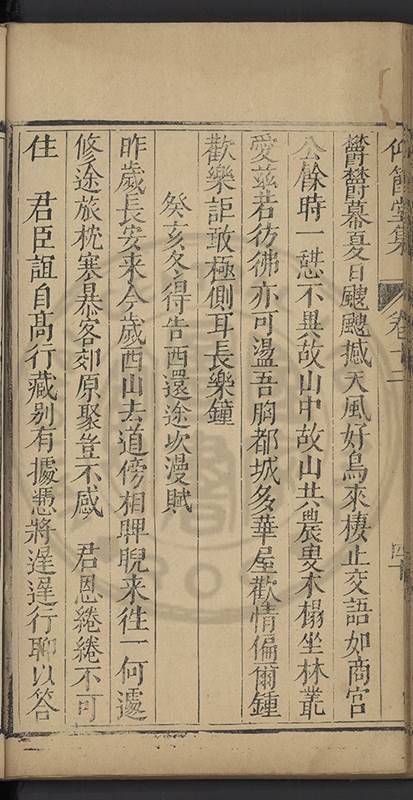 仰節堂集 卷十二 四十
欝欝幕夏日飃飃撼天風好鳥來棲止交語如商宮
公餘時一憇不異故山中故山共農叟木榻坐林叢
愛茲若彷彿亦可盪吾胸都城多華屋歡情偏爾鍾
歡樂詎敢極側耳長樂鐘
癸亥冬得告西還途次漫賦
昨歲長安来今歲西山去道傍相睥睨来往一何遽
修途旅枕寒暴客郊原聚豈不感 君恩綣綣不可
住 君臣誼自高行藏别有據慿將遲遲行聊以答